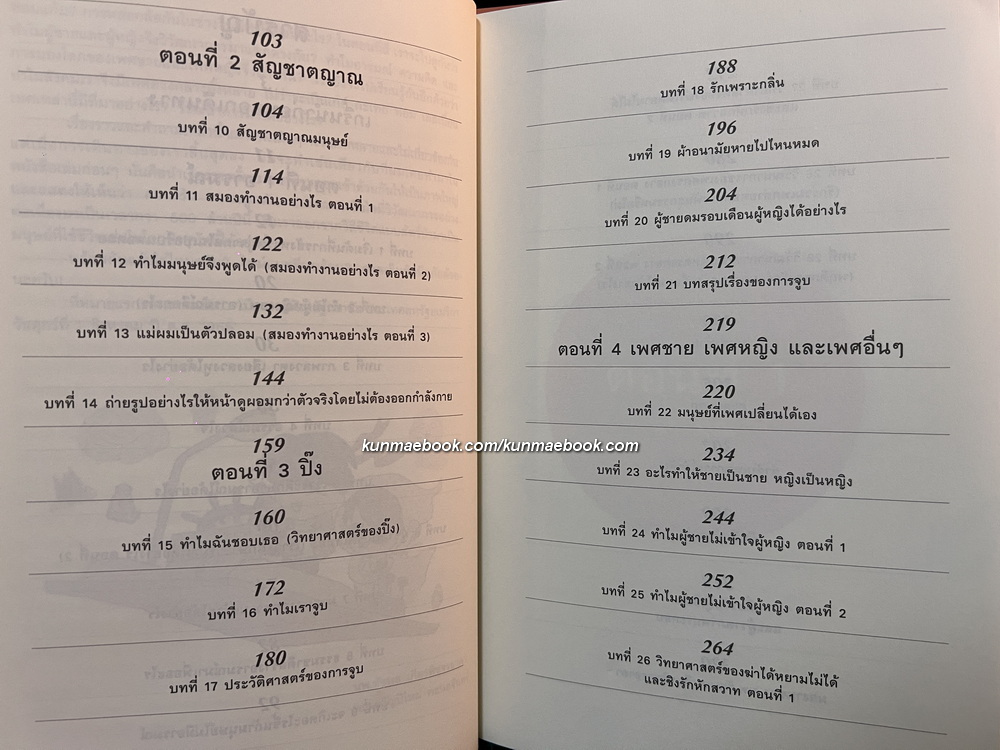 103
ตอนที่ 2 สัญชาตญาณ
104
บทที่ 10 สัญชาตญาณมนุษย์
114
บทที่ 11 สมองทำงานอย่างไร ตอนที่ 1
122
บทที่ 12 ทำไมมนุษย์จึงพูดได้ (สมองทำงานอย่างไร ตอนที่ 2)
132
บทที่ 13 แม่ผมเป็นตัวปลอม (สมองทำงานอย่างไร ตอนที่ 3)
144
บทที่ 14 ถ่ายรูปอย่างไรให้หน้าดูผอมกว่าตัวจริงโดยไม่ต้องออกกำลังกาย
159
ตอนที่ 3 ปิ๊ง
160
บทที่ 15 ทำไมฉันชอบเธอ (วิทยาศาสตร์ของปิ๊ง)
172
บทที่ 16 ทำไมเราจูบ
180
บทที่ 17 ประวัติศาสตร์ของการจูบ
188
บทที่ 18 รักเพราะกลิ่น
196
บทที่ 19 ผ้าอนามัยหายไปไหนหมด
204
บทที่ 20 ผู้ชายดมรอบเดือนผู้หญิงได้อย่างไร
212
บทที่ 21 บทสรุปเรื่องของการจูบ
219
ตอนที่ 4 เพศชาย เพศหญิง และเพศอื่นๆ
220
บทที่ 22 มนุษย์ที่เพศเปลี่ยนได้เอง
234
บทที่ 23 อะไรทำให้ชายเป็นชาย หญิงเป็นหญิง
244
บทที่ 24 ทำไมผู้ชายไม่เข้าใจผู้หญิง ตอนที่ 1
252
บทที่ 25 ทำไมผู้ชายไม่เข้าใจผู้หญิง ตอนที่ 2
264
บทที่ 26 วิทยาศาสตร์ของฆ่าได้หยามไม่ได้
และชิงรักหักสวาท ตอนที่ 1
kunmaebook.com/kunmaebook.com